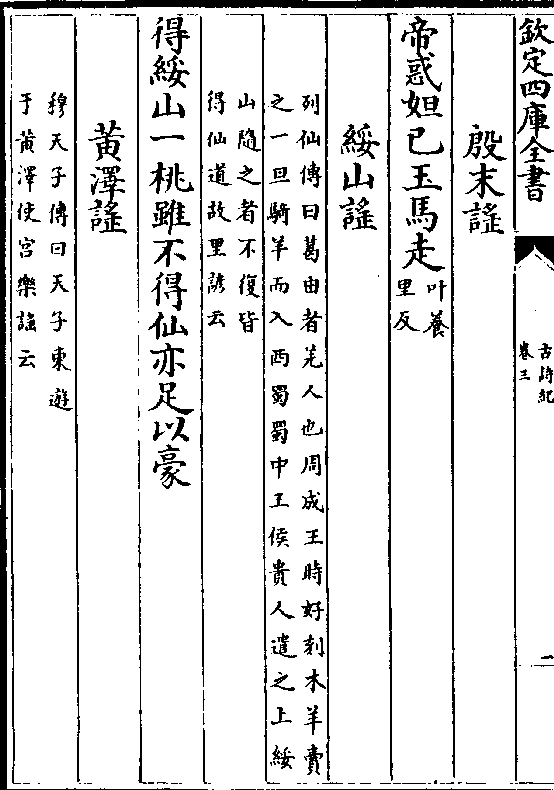 欽定四庫全書
古詩紀
卷三
一
殷末謡
帝惑妲己玉馬走
叶養
里反
綏山謡
列仙傳曰葛由者羌人也周成王時好刻木羊賣
之一旦騎羊而入西蜀蜀中王侯貴人遣之上綏
山隨之者不復皆
得仙道故里諺云
得綏山一桃雖不得仙亦足以豪
黄澤謡
穆天子傳曰天子東遊
于黄澤使宫樂謡云